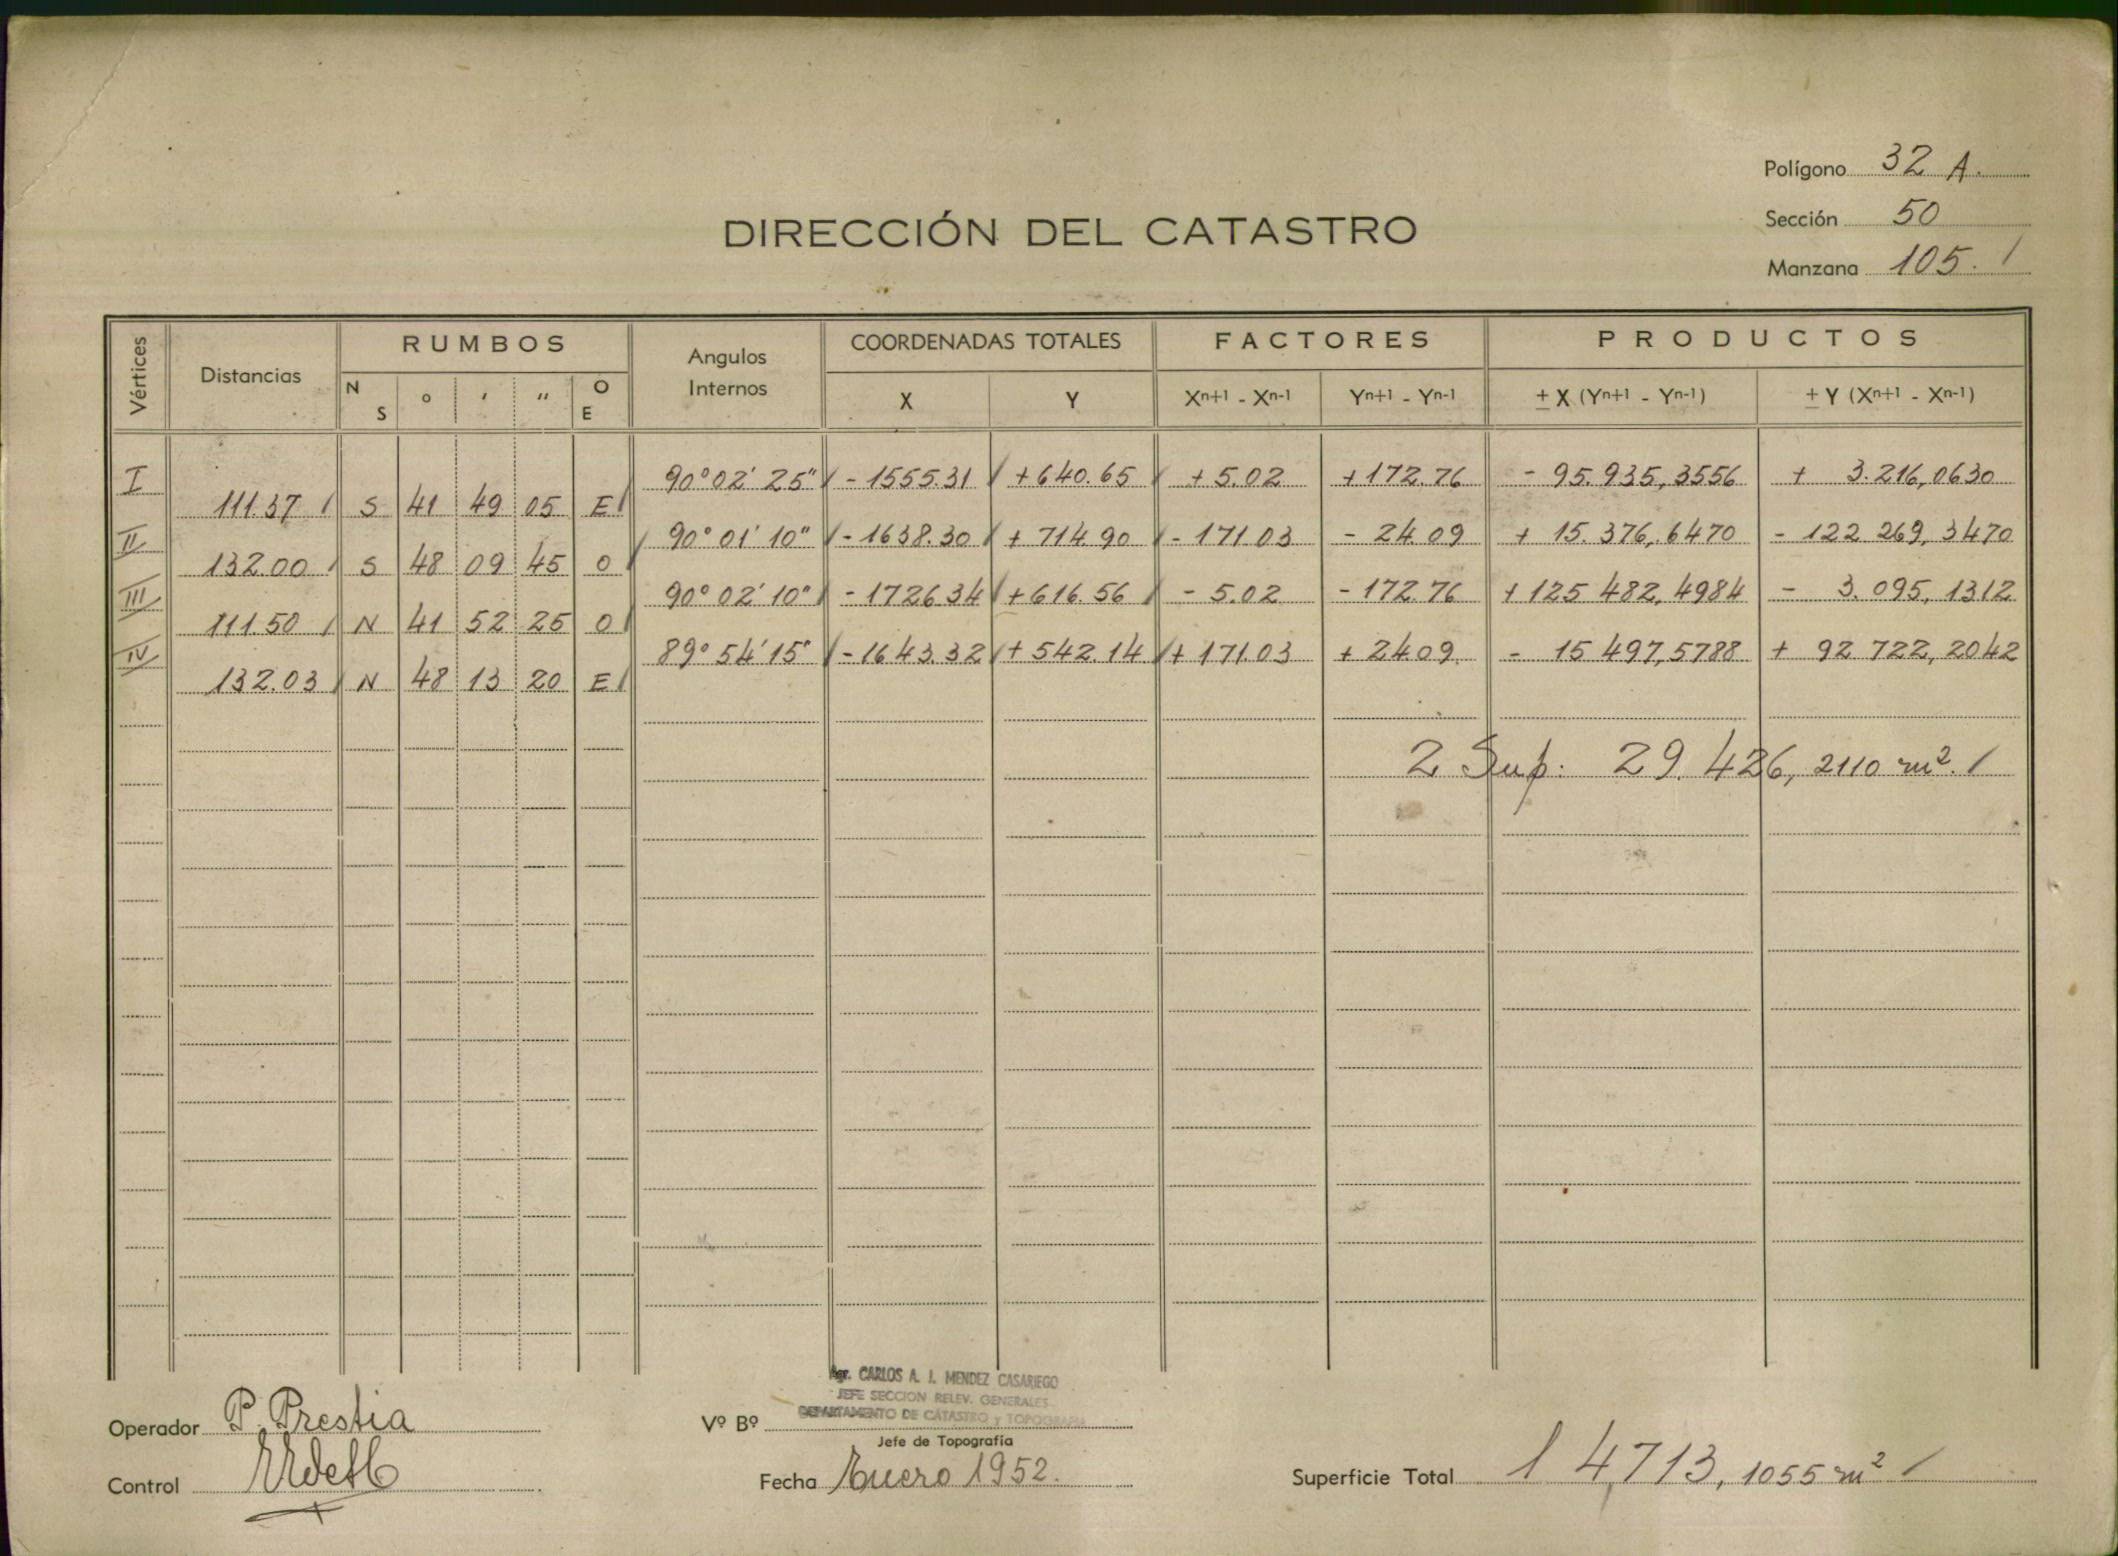 Polígono 32 A.
Sección 50
Manzana 105. /
DIRECCIÓN DEL CATASTRO
Vértices Distancias RUMBOS Angulos Internos COORDENADAS TOTALES FACTORES PRODUCTOS
N S ° ' " O E X Y Xn+1 - Xn-1 Yn+1 - Yn-1 ± X (Yn+1 - Yn-1) ± Y (Xn+1 - Xn-1)
I 90° 02' 25" / - 1555.31 / + 640.65 / + 5.02 + 172.76 - 95.935,3556 + 3.216,0630
111.37 / S 41 49 05 E /
II 90° 01' 10" / - 1638.30 / + 714.90 / - 171.03 - 24.09 + 15.376,6470 - 122 269,3470
132.00 / S 48 09 45 O /
III 90° 02' 10" / - 1726.34 / + 616.56 / - 5.02 - 172.76 + 125 482,4984 - 3.095,1312
111.50 / N 41 52 25 O /
IV 89° 54' 15" / - 1643.32 / + 542.14 / + 171.03 + 24.09 - 15 497,5788 + 92 722,2042
132.03 / N 48 13 20 E /
2 Sup. 29.426,2110 m². /
Agr. CARLOS A. J. MENDEZ CASARIEGO
JEFE SECCION RELEV. GENERALES
DEPARTAMENTO DE CATASTRO y TOPOGRAFIA
Operador P. Prestia
Vº Bº
Jefe de Topografía
Control
Fecha Enero 1952.
Superficie Total 14,713,1055 m² /